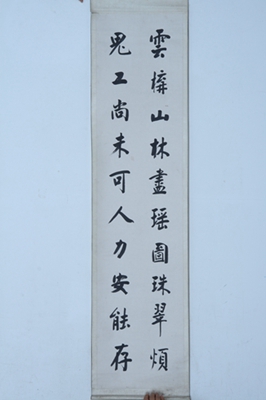 雲擠山林畫瑶圖珠翠煩
鬼工尚未可人力安能存